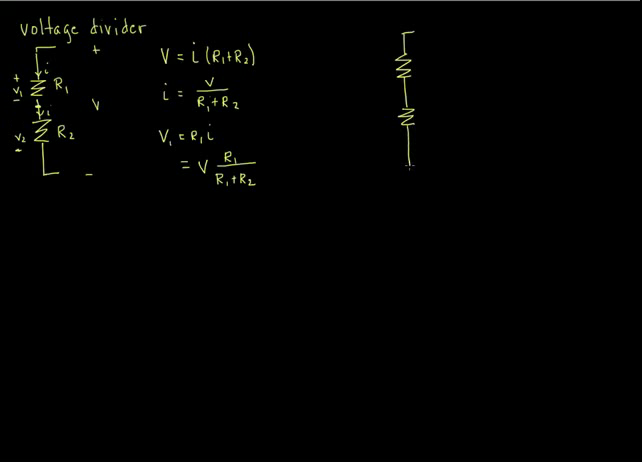 voltage divider
+
i
+
V₁ R₁
-
i
V
V₂ R₂
-
-
V = i (R₁+R₂)
i = V / R₁+R₂
V₁ = R₁ i
= V R₁ / R₁+R₂